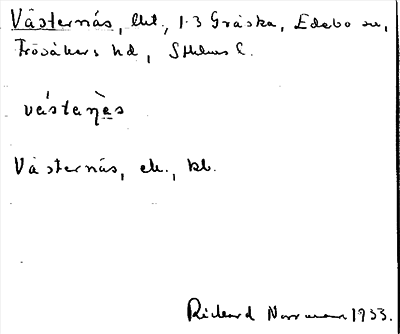 Västernäs, lht., 1-3 Gräska, Edebo sn,
Frösåkers hd, Sthlms l.
västeṇɛs
Västernäs, ek., kb.
Richard Norrman 1933.